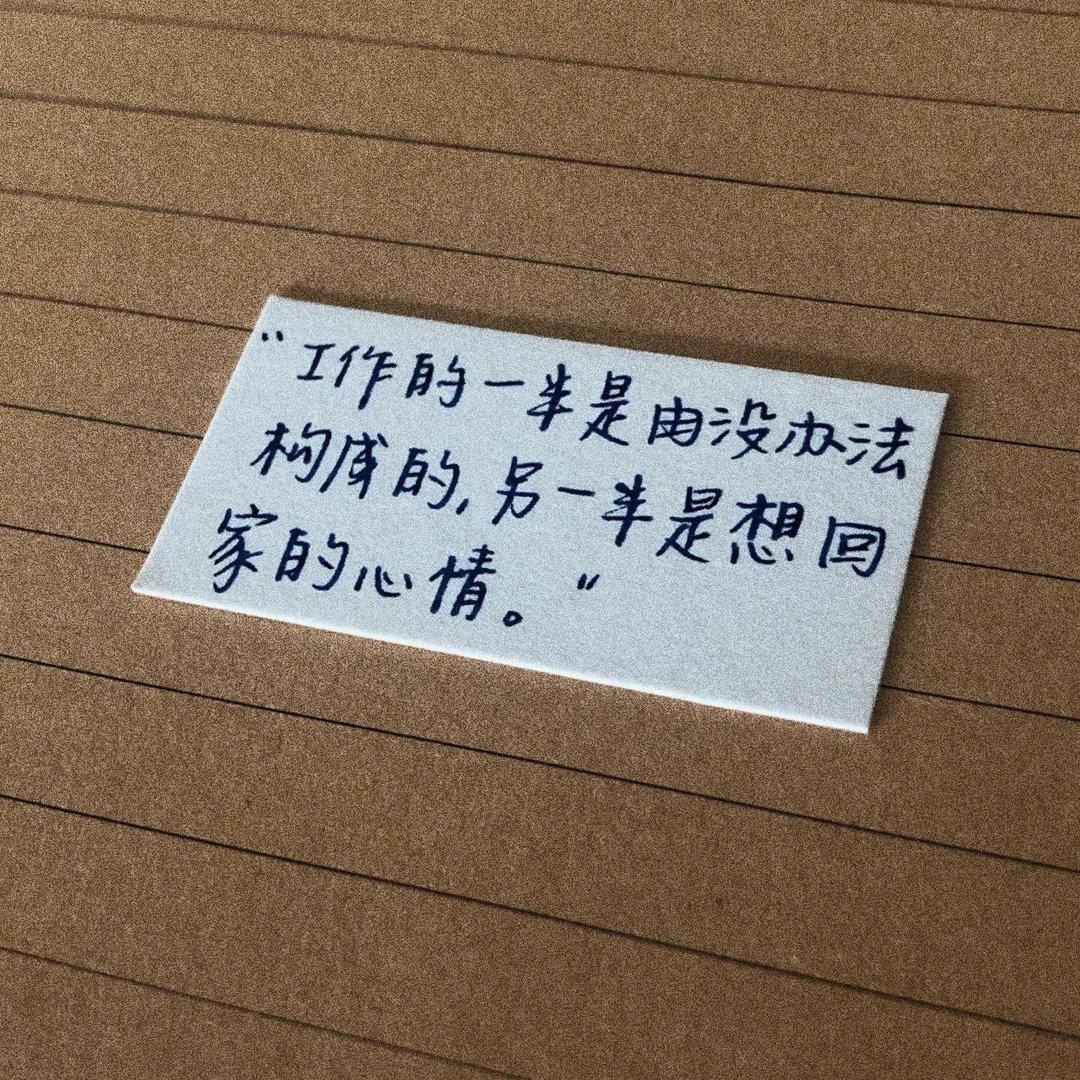 “工作的一半是由没办法
构成的,另一半是想回
家的心情。”